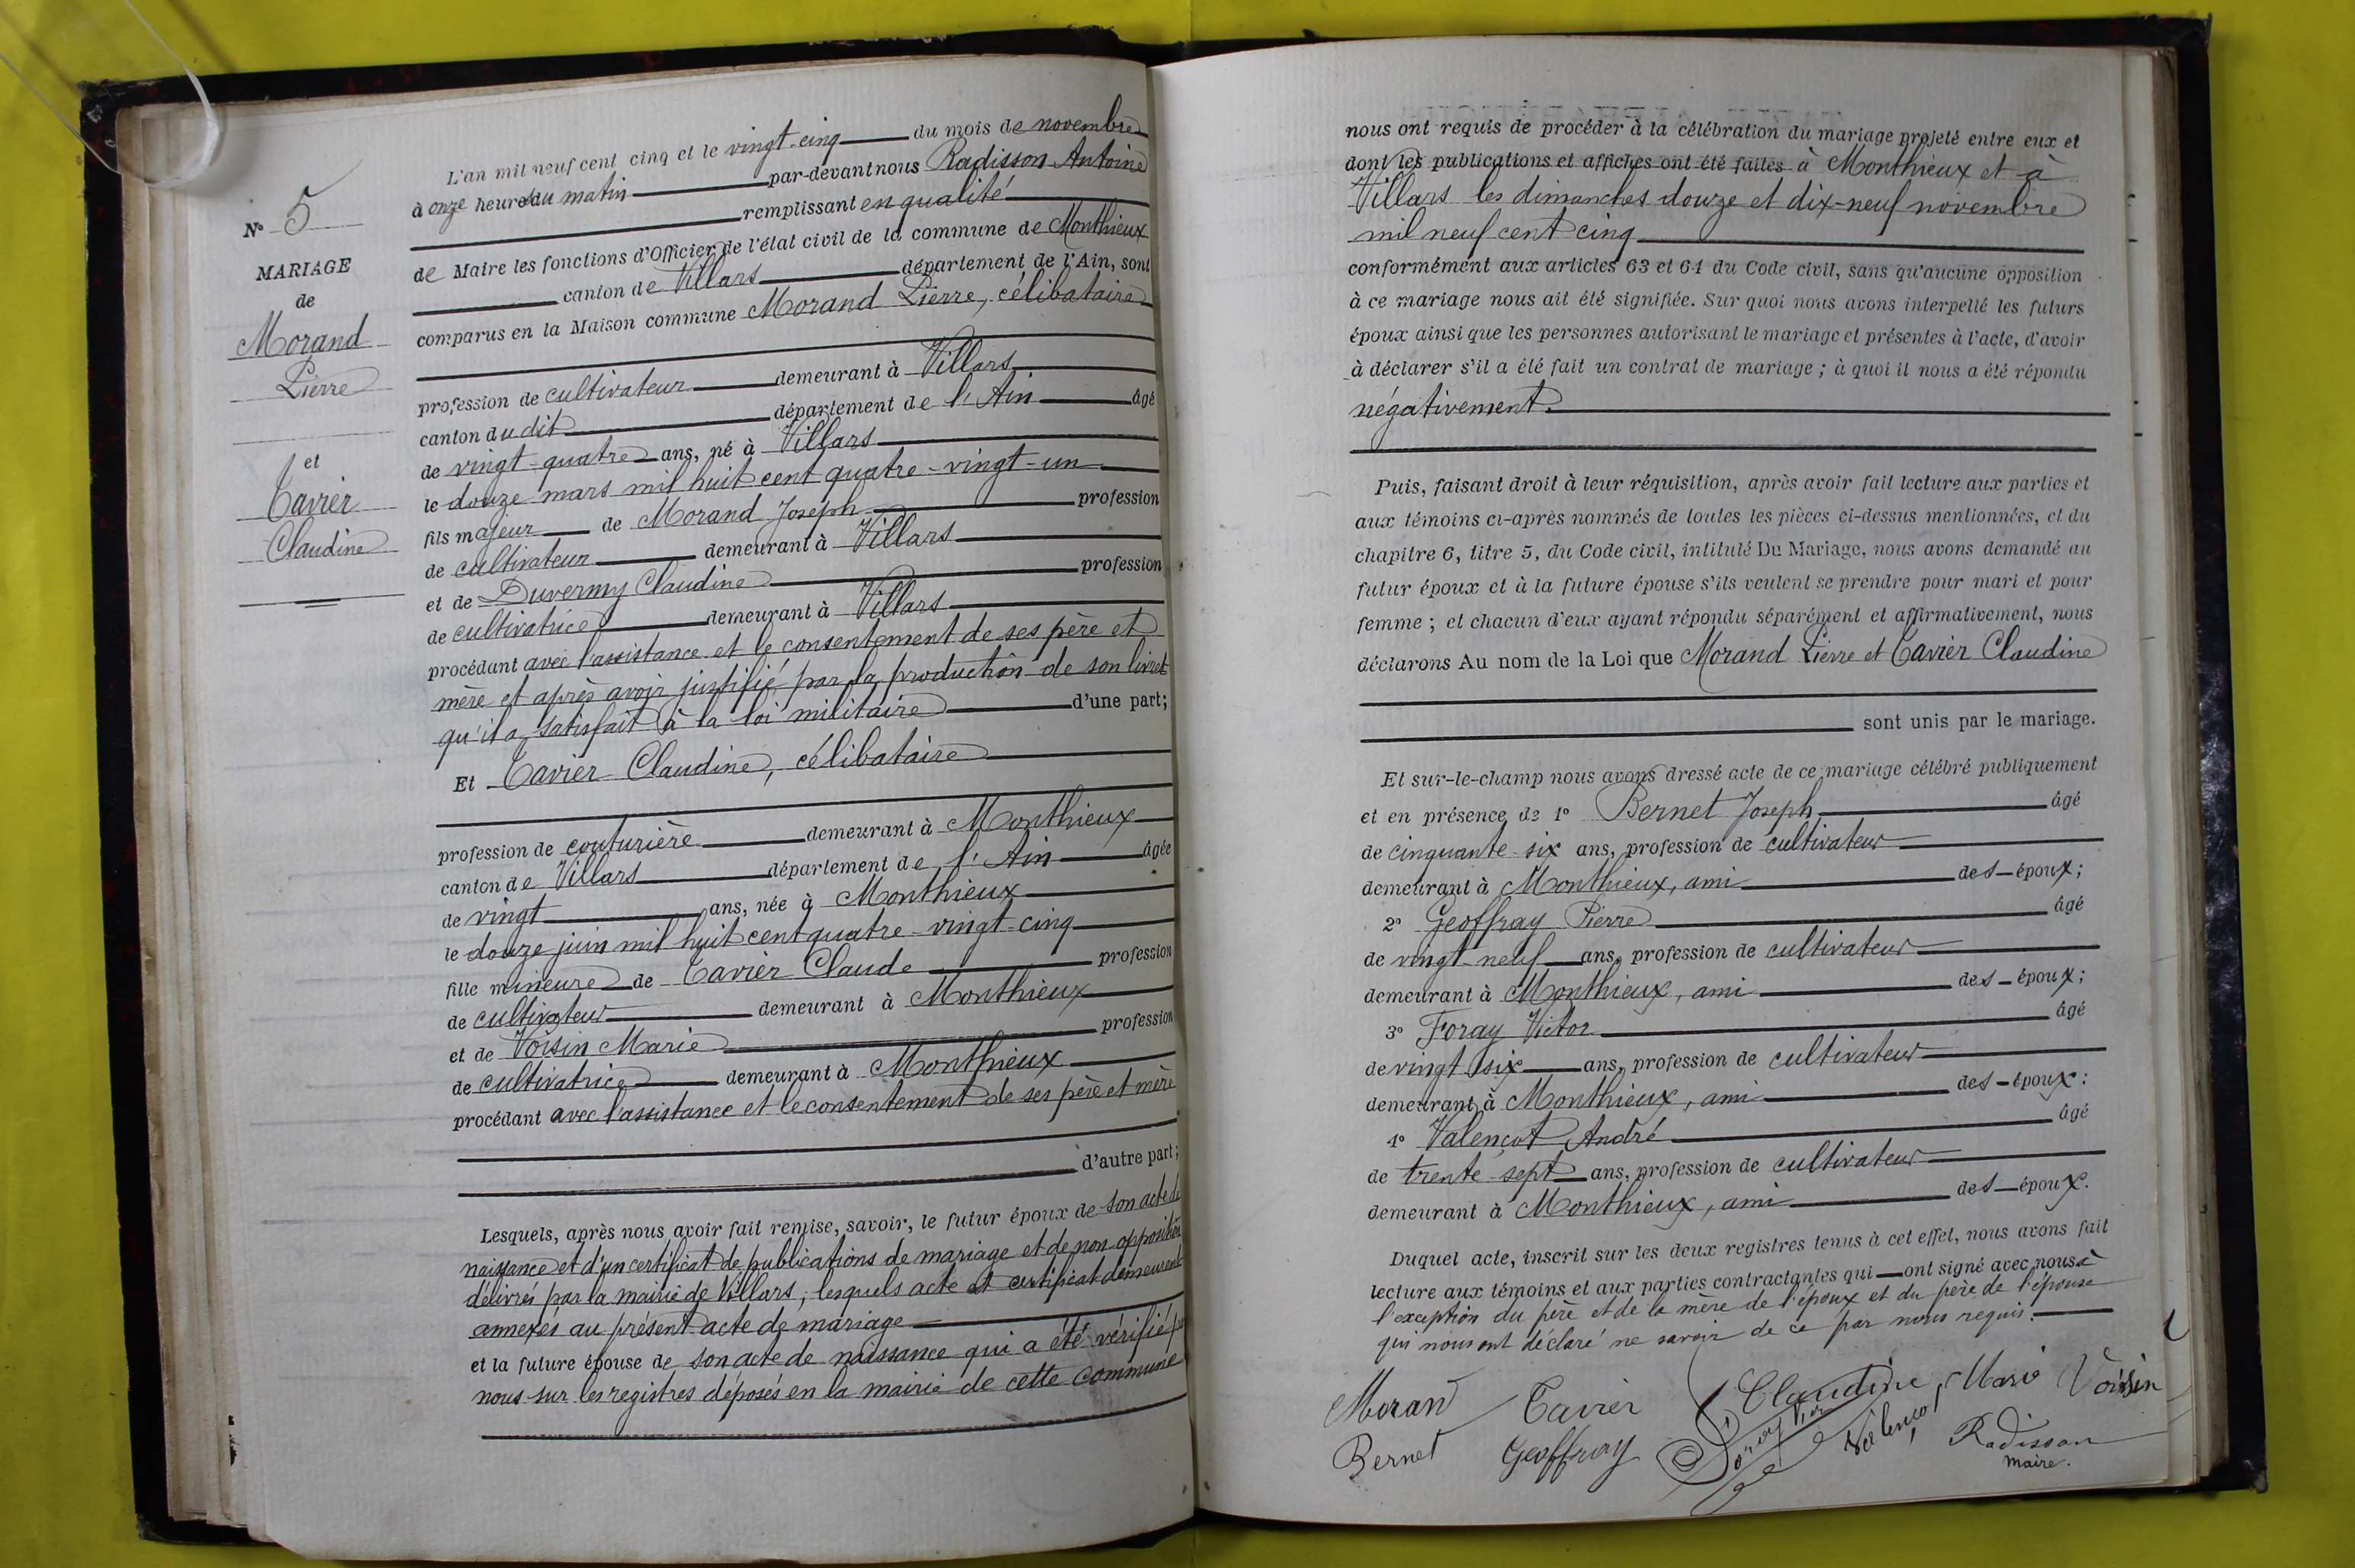 N° 5
MARIAGE
de
Morand
Pierre
et
Tavier
Claudine
L'an mil neuf cent cinq et le vingt-cinq du mois de novembre
à onze heures du matin par-devant nous Radisson Antoine
remplissant en qualité
de Maire les fonctions d'Officier de l'état civil de la commune de Monthieux
canton de Villars département de l'Ain, sont
comparus en la Maison commune Morand Pierre, célibataire
profession de cultivateur demeurant à Villars
canton dudit département de l'Ain âgé
de vingt-quatre ans, né à Villars
le douze mars mil huit cent quatre-vingt-un
fils majeur de Morand Joseph profession
de cultivateur demeurant à Villars
et de Duvermy Claudine profession
de cultivatrice demeurant à Villars
procédant avec l'assistance et le consentement de ses père et
mère et après avoir justifié par la production de son livret
qu'il a satisfait à la loi militaire d'une part;
Et Tavier Claudine, célibataire
profession de couturière demeurant à Monthieux
canton de Villars département de l'Ain âgée
de vingt ans, née à Monthieux
le douze juin mil huit cent quatre-vingt-cinq
fille mineure de Tavier Claude profession
de cultivateur demeurant à Monthieux
et de Voisin Marie profession
de cultivatrice demeurant à Monthieux
procédant avec l'assistance et le consentement de ses père et mère
d'autre part;
Lesquels, après nous avoir fait remise, savoir, le futur époux de son acte de
naissance et d'un certificat de publications de mariage et de non opposition
délivrés par la mairie de Villars, lesquels acte et certificat demeurent
annexés au présent acte de mariage
et la future épouse de son acte de naissance qui a été vérifié par
nous sur les registres déposés en la mairie de cette commune
nous ont requis de procéder à la célébration du mariage projeté entre eux et
dont les publications et affiches ont été faites à Monthieux et à
Villars les dimanches douze et dix-neuf novembre
mil neuf cent cinq
conformément aux articles 63 et 64 du Code civil, sans qu'aucune opposition
à ce mariage nous ait été signifiée. Sur quoi nous avons interpellé les futurs
époux ainsi que les personnes autorisant le mariage et présentes à l'acte, d'avoir
à déclarer s'il a été fait un contrat de mariage; à quoi il nous a été répondu
négativement.
Puis, faisant droit à leur réquisition, après avoir fait lecture aux parties et
aux témoins ci-après nommés de toutes les pièces ci-dessus mentionnées, et du
chapitre 6, titre 5, du Code civil, intitulé Du Mariage, nous avons demandé au
futur époux et à la future épouse s'ils veulent se prendre pour mari et pour
femme; et chacun d'eux ayant répondu séparément et affirmativement, nous
déclarons Au nom de la Loi que Morand Pierre et Tavier Claudine
sont unis par le mariage.
Et sur-le-champ nous avons dressé acte de ce mariage célébré publiquement
et en présence de 1° Bernet Joseph âgé
de cinquante-six ans, profession de cultivateur
demeurant à Monthieux, ami des époux;
2° Geoffray Pierre âgé
de vingt-neuf ans, profession de cultivateur
demeurant à Monthieux, ami des époux;
3° Foray Victor âgé
de vingt six ans, profession de cultivateur
demeurant à Monthieux, ami des époux:
4° Valençot André âgé
de trente-sept ans, profession de cultivateur
demeurant à Monthieux, ami des époux.
Duquel acte, inscrit sur les deux registres tenus à cet effet, nous avons fait
lecture aux témoins et aux parties contractantes qui ont signé avec nous à
l'exception du père et de la mère de l'époux et du père de l'épouse
qui nous ont déclaré ne savoir de ce par nous requis.
Morand Tavier Claudine, Marie Voisin
Bernet Geoffray Foray Valençot Radisson
maire.